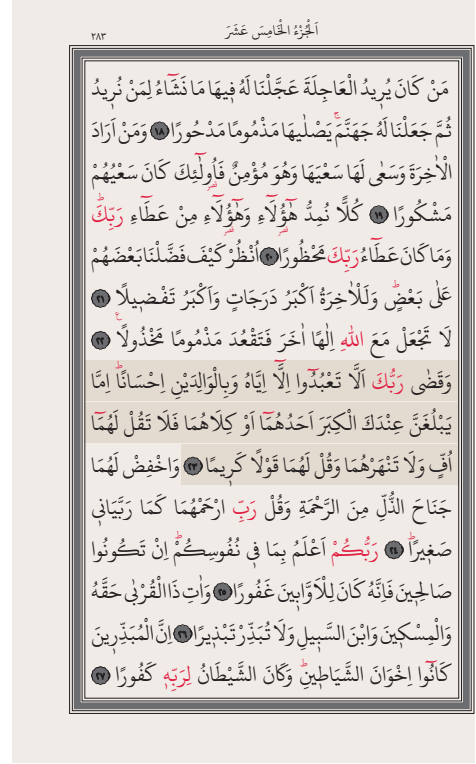 اَلْجُزْءُ الْخَامِسَ عَشَرَ
٢٨٣
مَنْ كَانَ يُرِيدُ الْعَاجِلَةَ عَجَّلْنَا لَهُ فِيهَا مَا نَشَٓاءُ لِمَنْ نُرِيدُ
ثُمَّ جَعَلْنَا لَهُ جَهَنَّمَۚ يَصْلٰيهَا مَذْمُومًا مَدْحُورًا ﴿١٨﴾ وَمَنْ اَرَادَ
الْاٰخِرَةَ وَسَعٰى لَهَا سَعْيَهَا وَهُوَ مُؤْمِنٌ فَاُو۬لٰٓئِكَ كَانَ سَعْيُهُمْ
مَشْكُورًا ﴿١٩﴾ كُلًّا نُمِدُّ هٰٓؤُ۬لَٓاءِ وَهٰٓؤُ۬لَٓاءِ مِنْ عَطَٓاءِ رَبِّكَۜ
وَمَا كَانَ عَطَٓاءُ رَبِّكَ مَحْظُورًا ﴿٢٠﴾ اُنْظُرْ كَيْفَ فَضَّلْنَا بَعْضَهُمْ
عَلٰى بَعْضٍۜ وَلَلْاٰخِرَةُ اَكْبَرُ دَرَجَاتٍ وَاَكْبَرُ تَفْضِيلًا ﴿٢١﴾
لَا تَجْعَلْ مَعَ اللّٰهِ اِلٰهًا اٰخَرَ فَتَقْعُدَ مَذْمُومًا مَخْذُولًا۟ ﴿٢٢﴾
وَقَضٰى رَبُّكَ اَلَّا تَعْبُدُٓوا اِلَّٓا اِيَّاهُ وَبِالْوَالِدَيْنِ اِحْسَانًاۜ اِمَّا
يَبْلُغَنَّ عِنْدَكَ الْكِبَرَ اَحَدُهُمَٓا اَوْ كِلَاهُمَا فَلَا تَقُلْ لَهُمَٓا
اُفٍّ وَلَا تَنْهَرْهُمَا وَقُلْ لَهُمَا قَوْلًا كَرِيمًا ﴿٢٣﴾ وَاخْفِضْ لَهُمَا
جَنَاحَ الذُّلِّ مِنَ الرَّحْمَةِ وَقُلْ رَبِّ ارْحَمْهُمَا كَمَا رَبَّيَانِي
صَغِيرًاۜ ﴿٢٤﴾ رَبُّكُمْ اَعْلَمُ بِمَا فِي نُفُوسِكُمْۜ اِنْ تَكُونُوا
صَالِحِينَ فَاِنَّهُ كَانَ لِلْاَوَّابِينَ غَفُورًا ﴿٢٥﴾ وَاٰتِ ذَا الْقُرْبٰى حَقَّهُ
وَالْمِسْكِينَ وَابْنَ السَّبِيلِ وَلَا تُبَذِّرْ تَبْذِيرًا ﴿٢٦﴾ اِنَّ الْمُبَذِّرِينَ
كَانُٓوا اِخْوَانَ الشَّيَاطِينِۜ وَكَانَ الشَّيْطَانُ لِرَبِّهِ كَفُورًا ﴿٢٧﴾